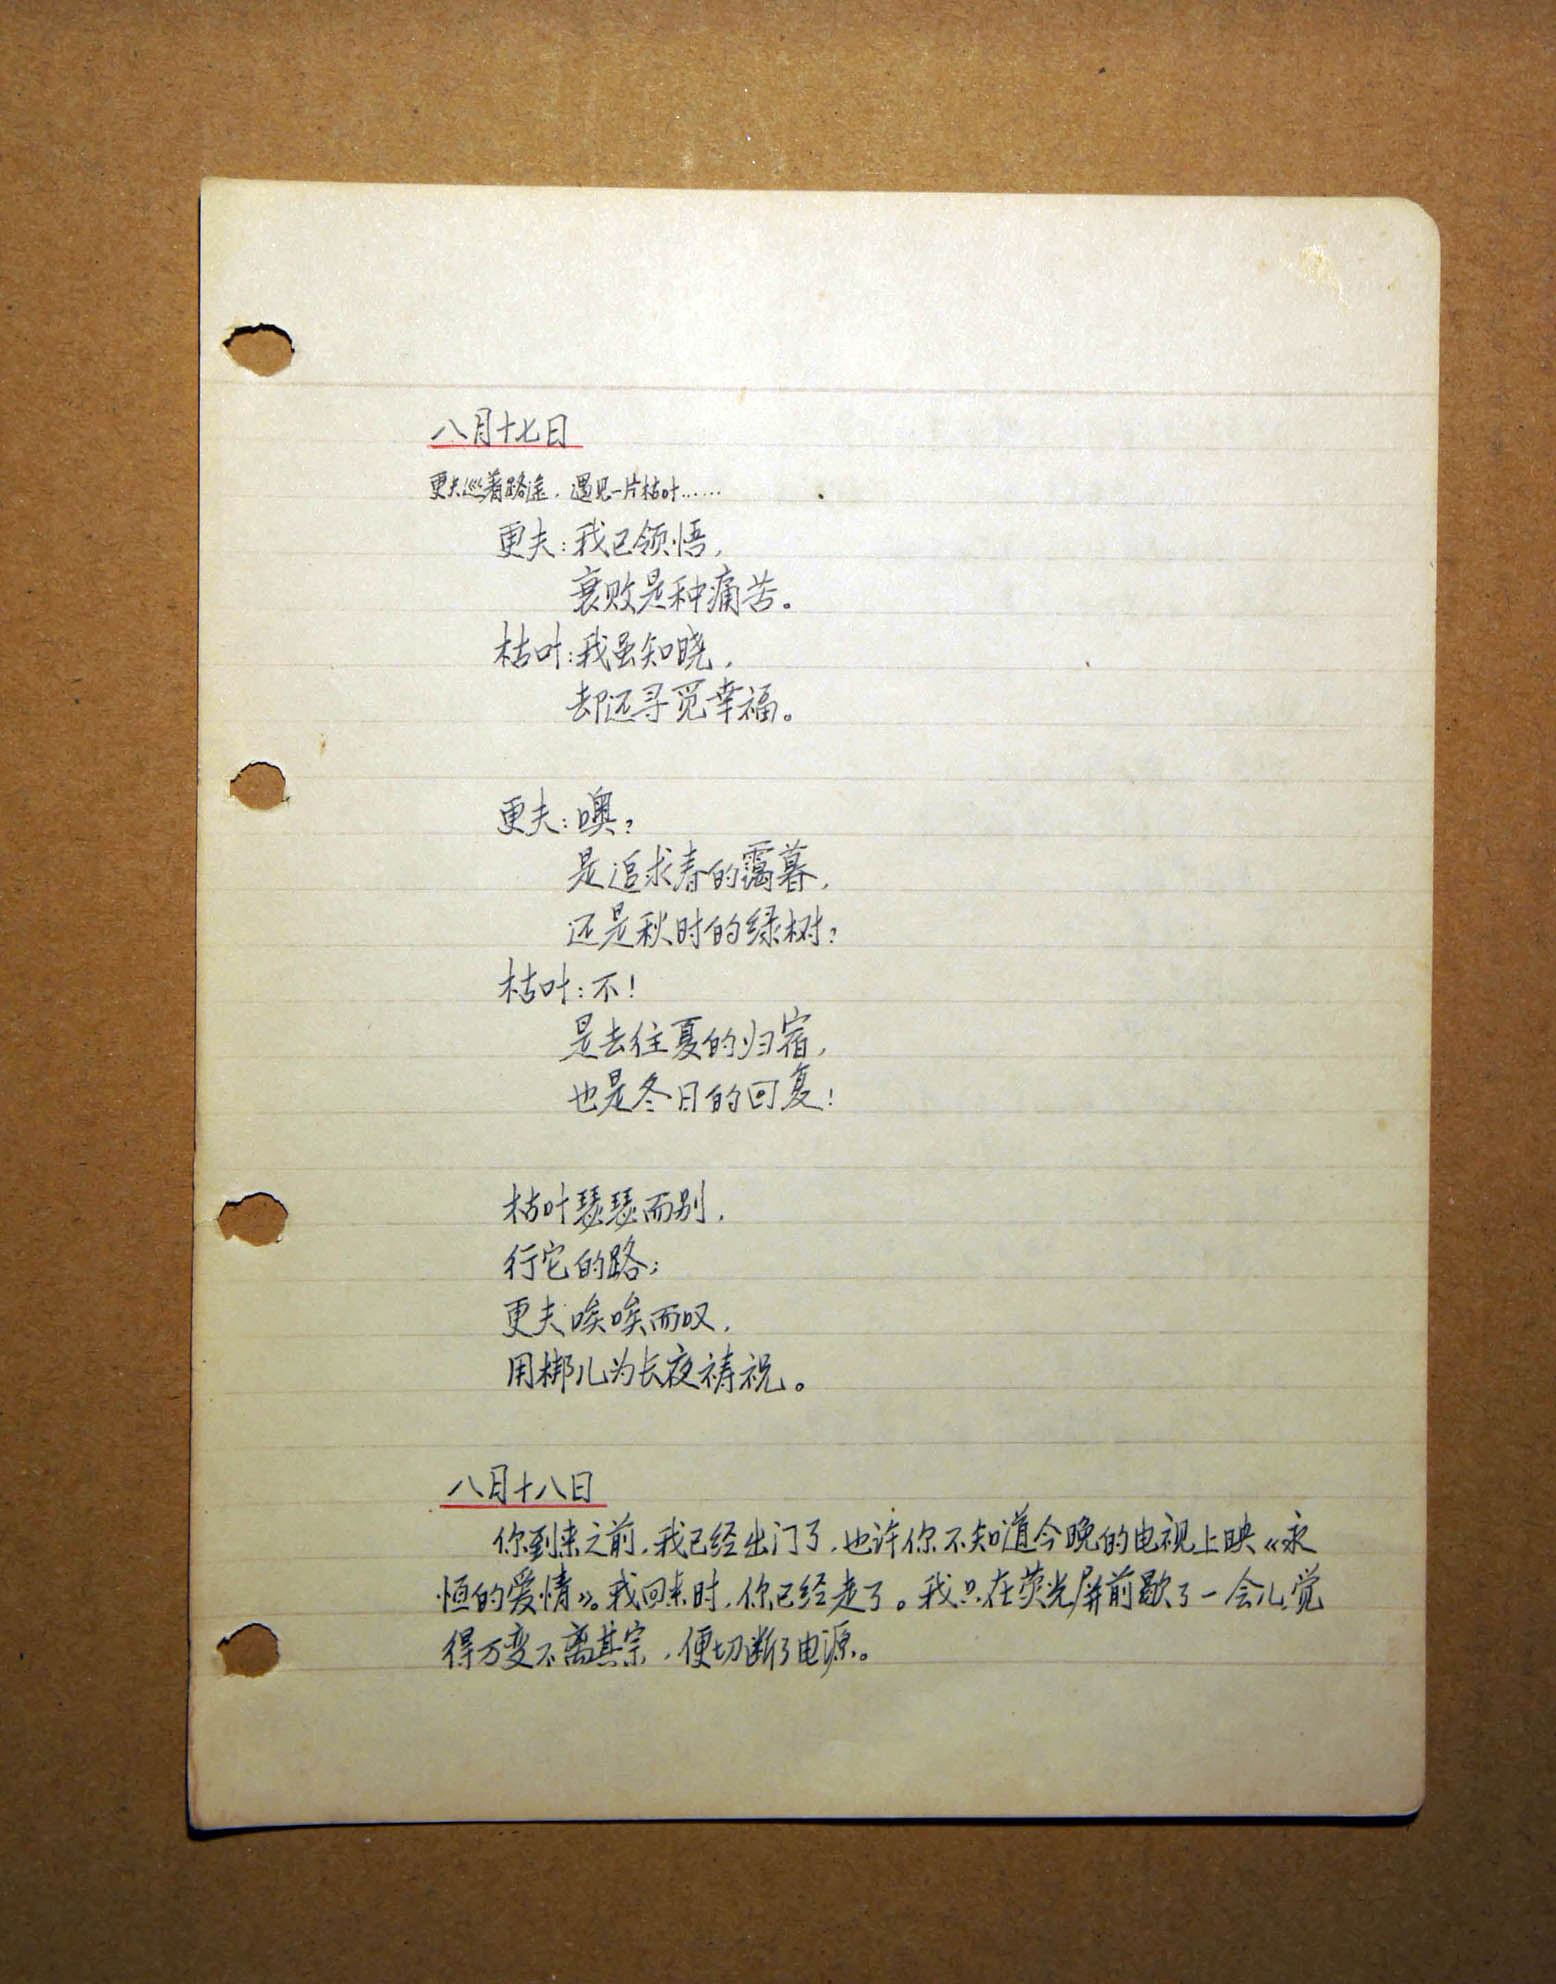 八月十七日
更夫巡着路途，遇见一片枯叶……
更夫：我已领悟，
衰败是种痛苦。
枯叶：我虽知晓，
却还寻觅幸福。
更夫：噢？
是追求春的霭暮，
还是秋时的绿树？
枯叶：不！
是去往夏的归宿，
也是冬日的回复！
枯叶瑟瑟而别，
行它的路；
更夫唉唉而叹，
用梆儿为长夜祷祝。
八月十八日
你到来之前，我已经出门了，也许你不知道今晚的电视上映《永
恒的爱情》。我回来时，你已经走了。我只在荧光屏前歇了一会儿，觉
得万变不离其宗，便切断了电源。